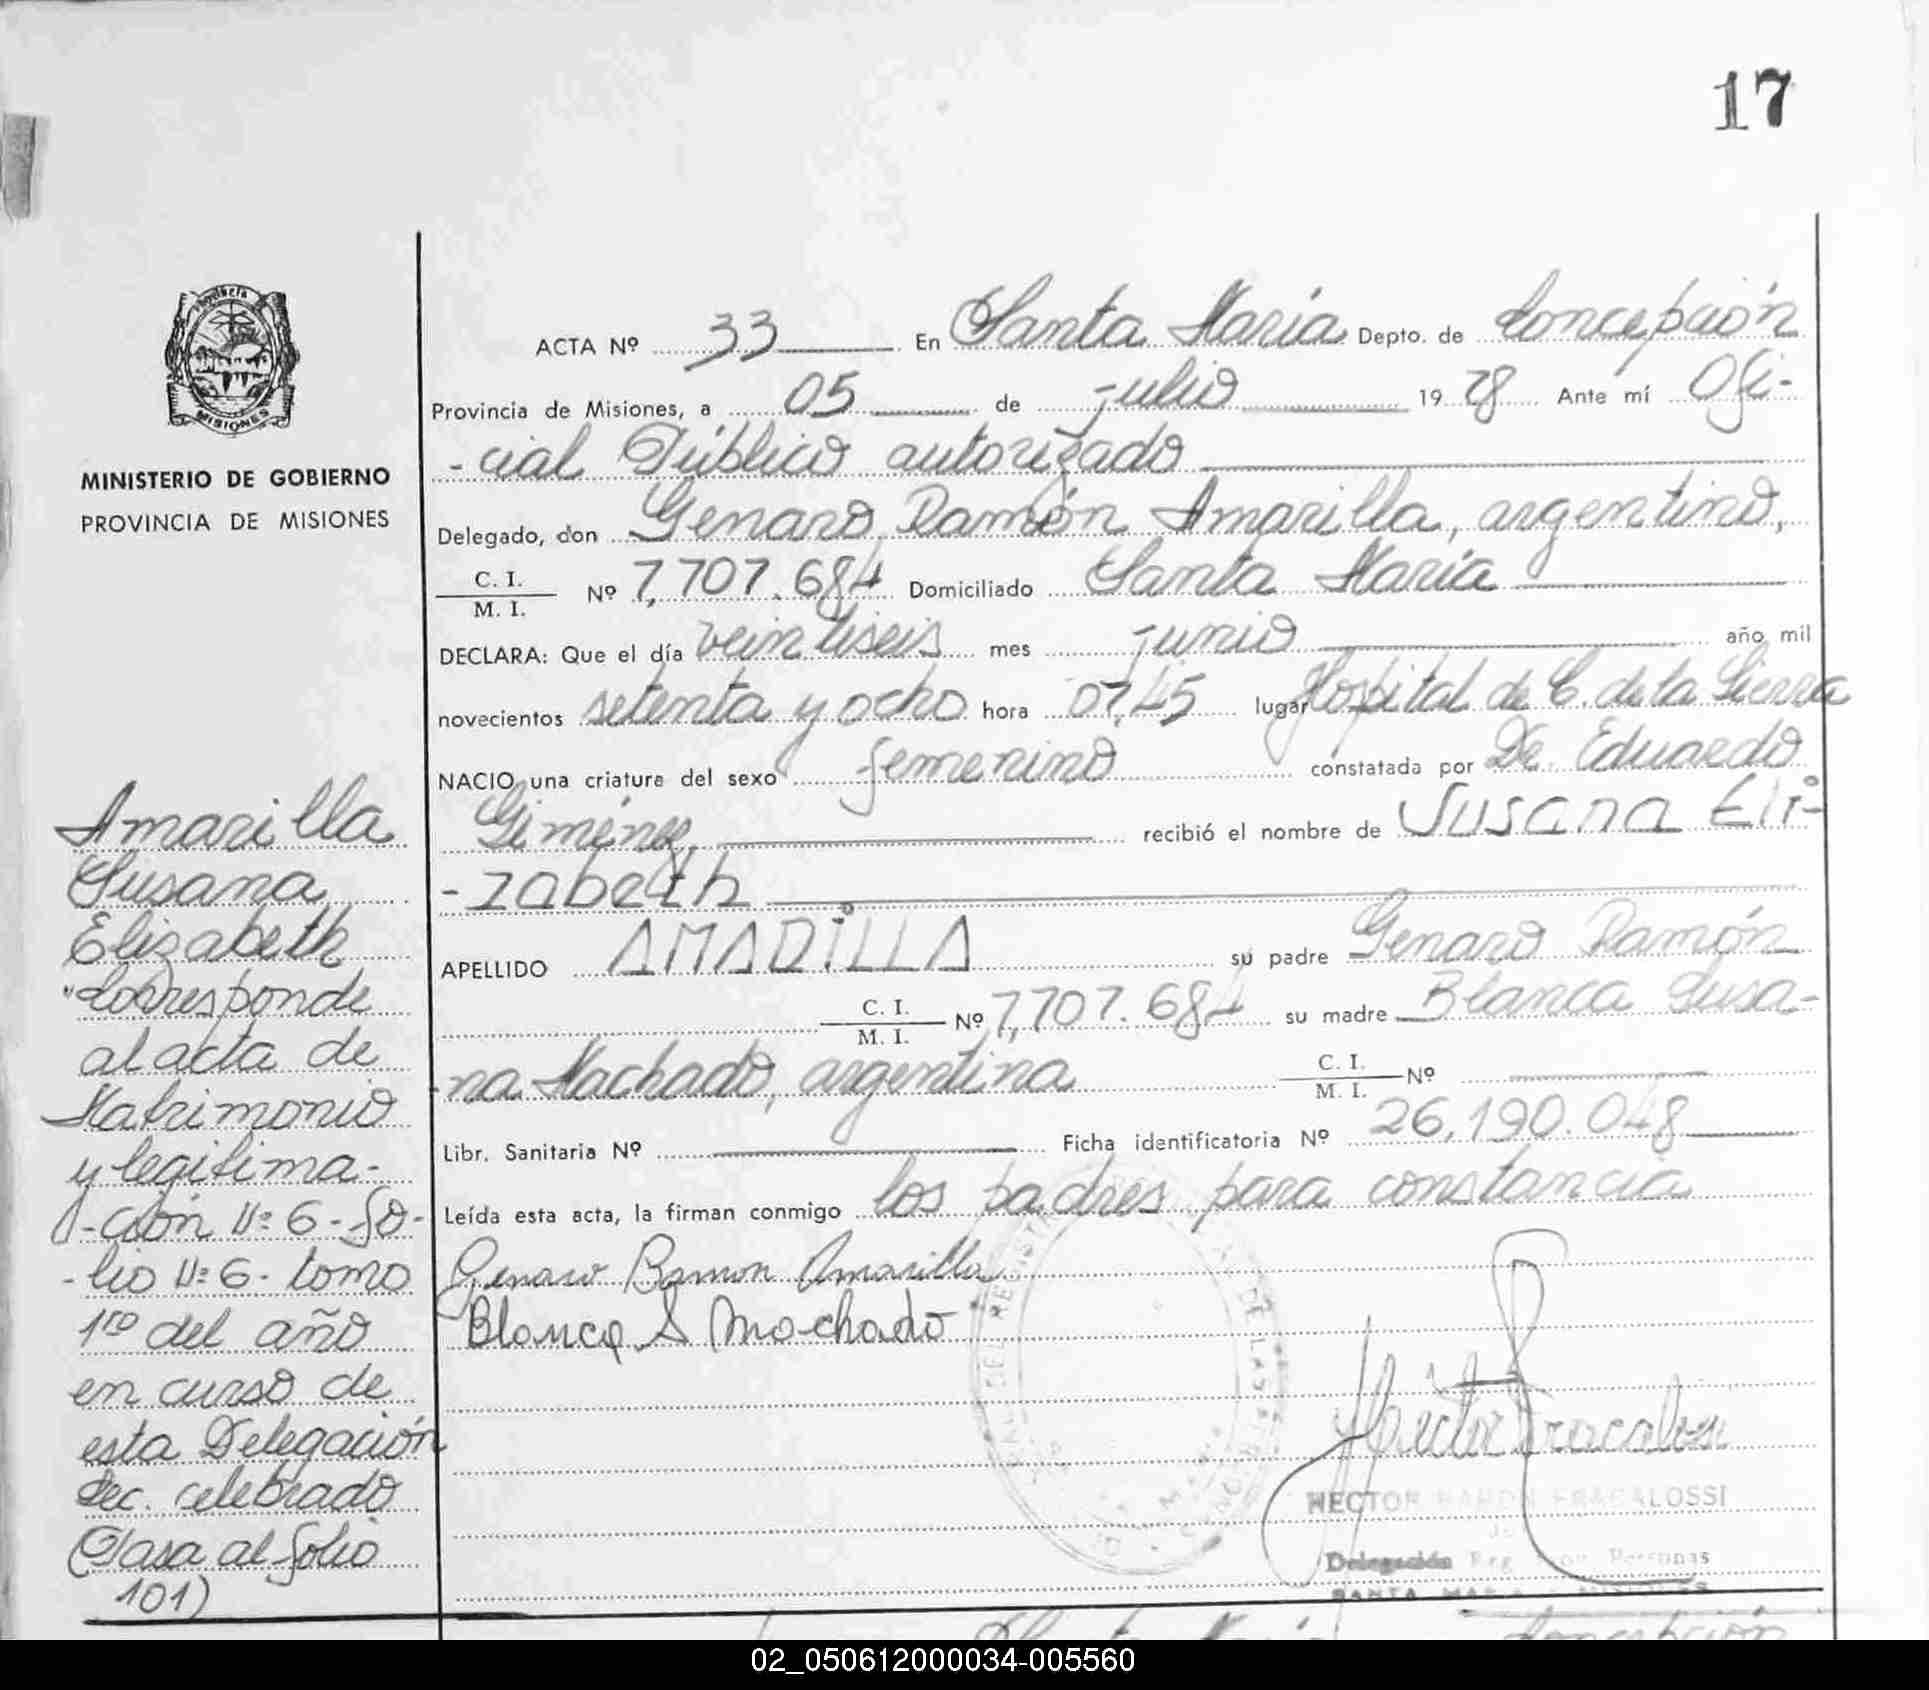 17
Provincia
MISIONES
MINISTERIO DE GOBIERNO
PROVINCIA DE MISIONES
Amarilla
Susana
Elizabeth
"Corresponde
al acta de
Matrimonio
y legitima-
-ción Nº 6- fo-
-lio Nº 6- tomo
1ro del año
en curso de
esta Delegación
Sec. celebrado
(Pasa al folio
101)
ACTA Nº 33 En Santa María Depto. de Concepción
Provincia de Misiones, a 05 de julio 1978 Ante mí Ofi-
-cial Público autorizado
Delegado, don Genaro Ramón Amarilla, argentino,
C. I.
M. I. Nº 7,707.684 Domiciliado Santa María
DECLARA: Que el día veintiseis mes junio año mil
novecientos setenta y ocho hora 07,45 lugar Hospital de C. de la Sierra
NACIO una criatura del sexo femenino constatada por Dr. Eduardo
Giménez, recibió el nombre de Susana Eli-
-zabeth
APELLIDO AMARILLA su padre Genaro Ramón
C. I.
M. I. Nº 7,707.684 su madre Blanca Susa-
-na Machado, argentina C. I.
M. I. Nº
Libr. Sanitaria Nº Ficha identificatoria Nº 26,190.048
Leída esta acta, la firman conmigo los padres para constancia
Genaro Ramon Amarilla
Blanca S Machado
Hector Fracalossi
HECTOR RAMON FRACALOSSI
Delegación Reg. Personas
SANTA MARIA - MISIONES
Santa María Concepción
02_050612000034-005560